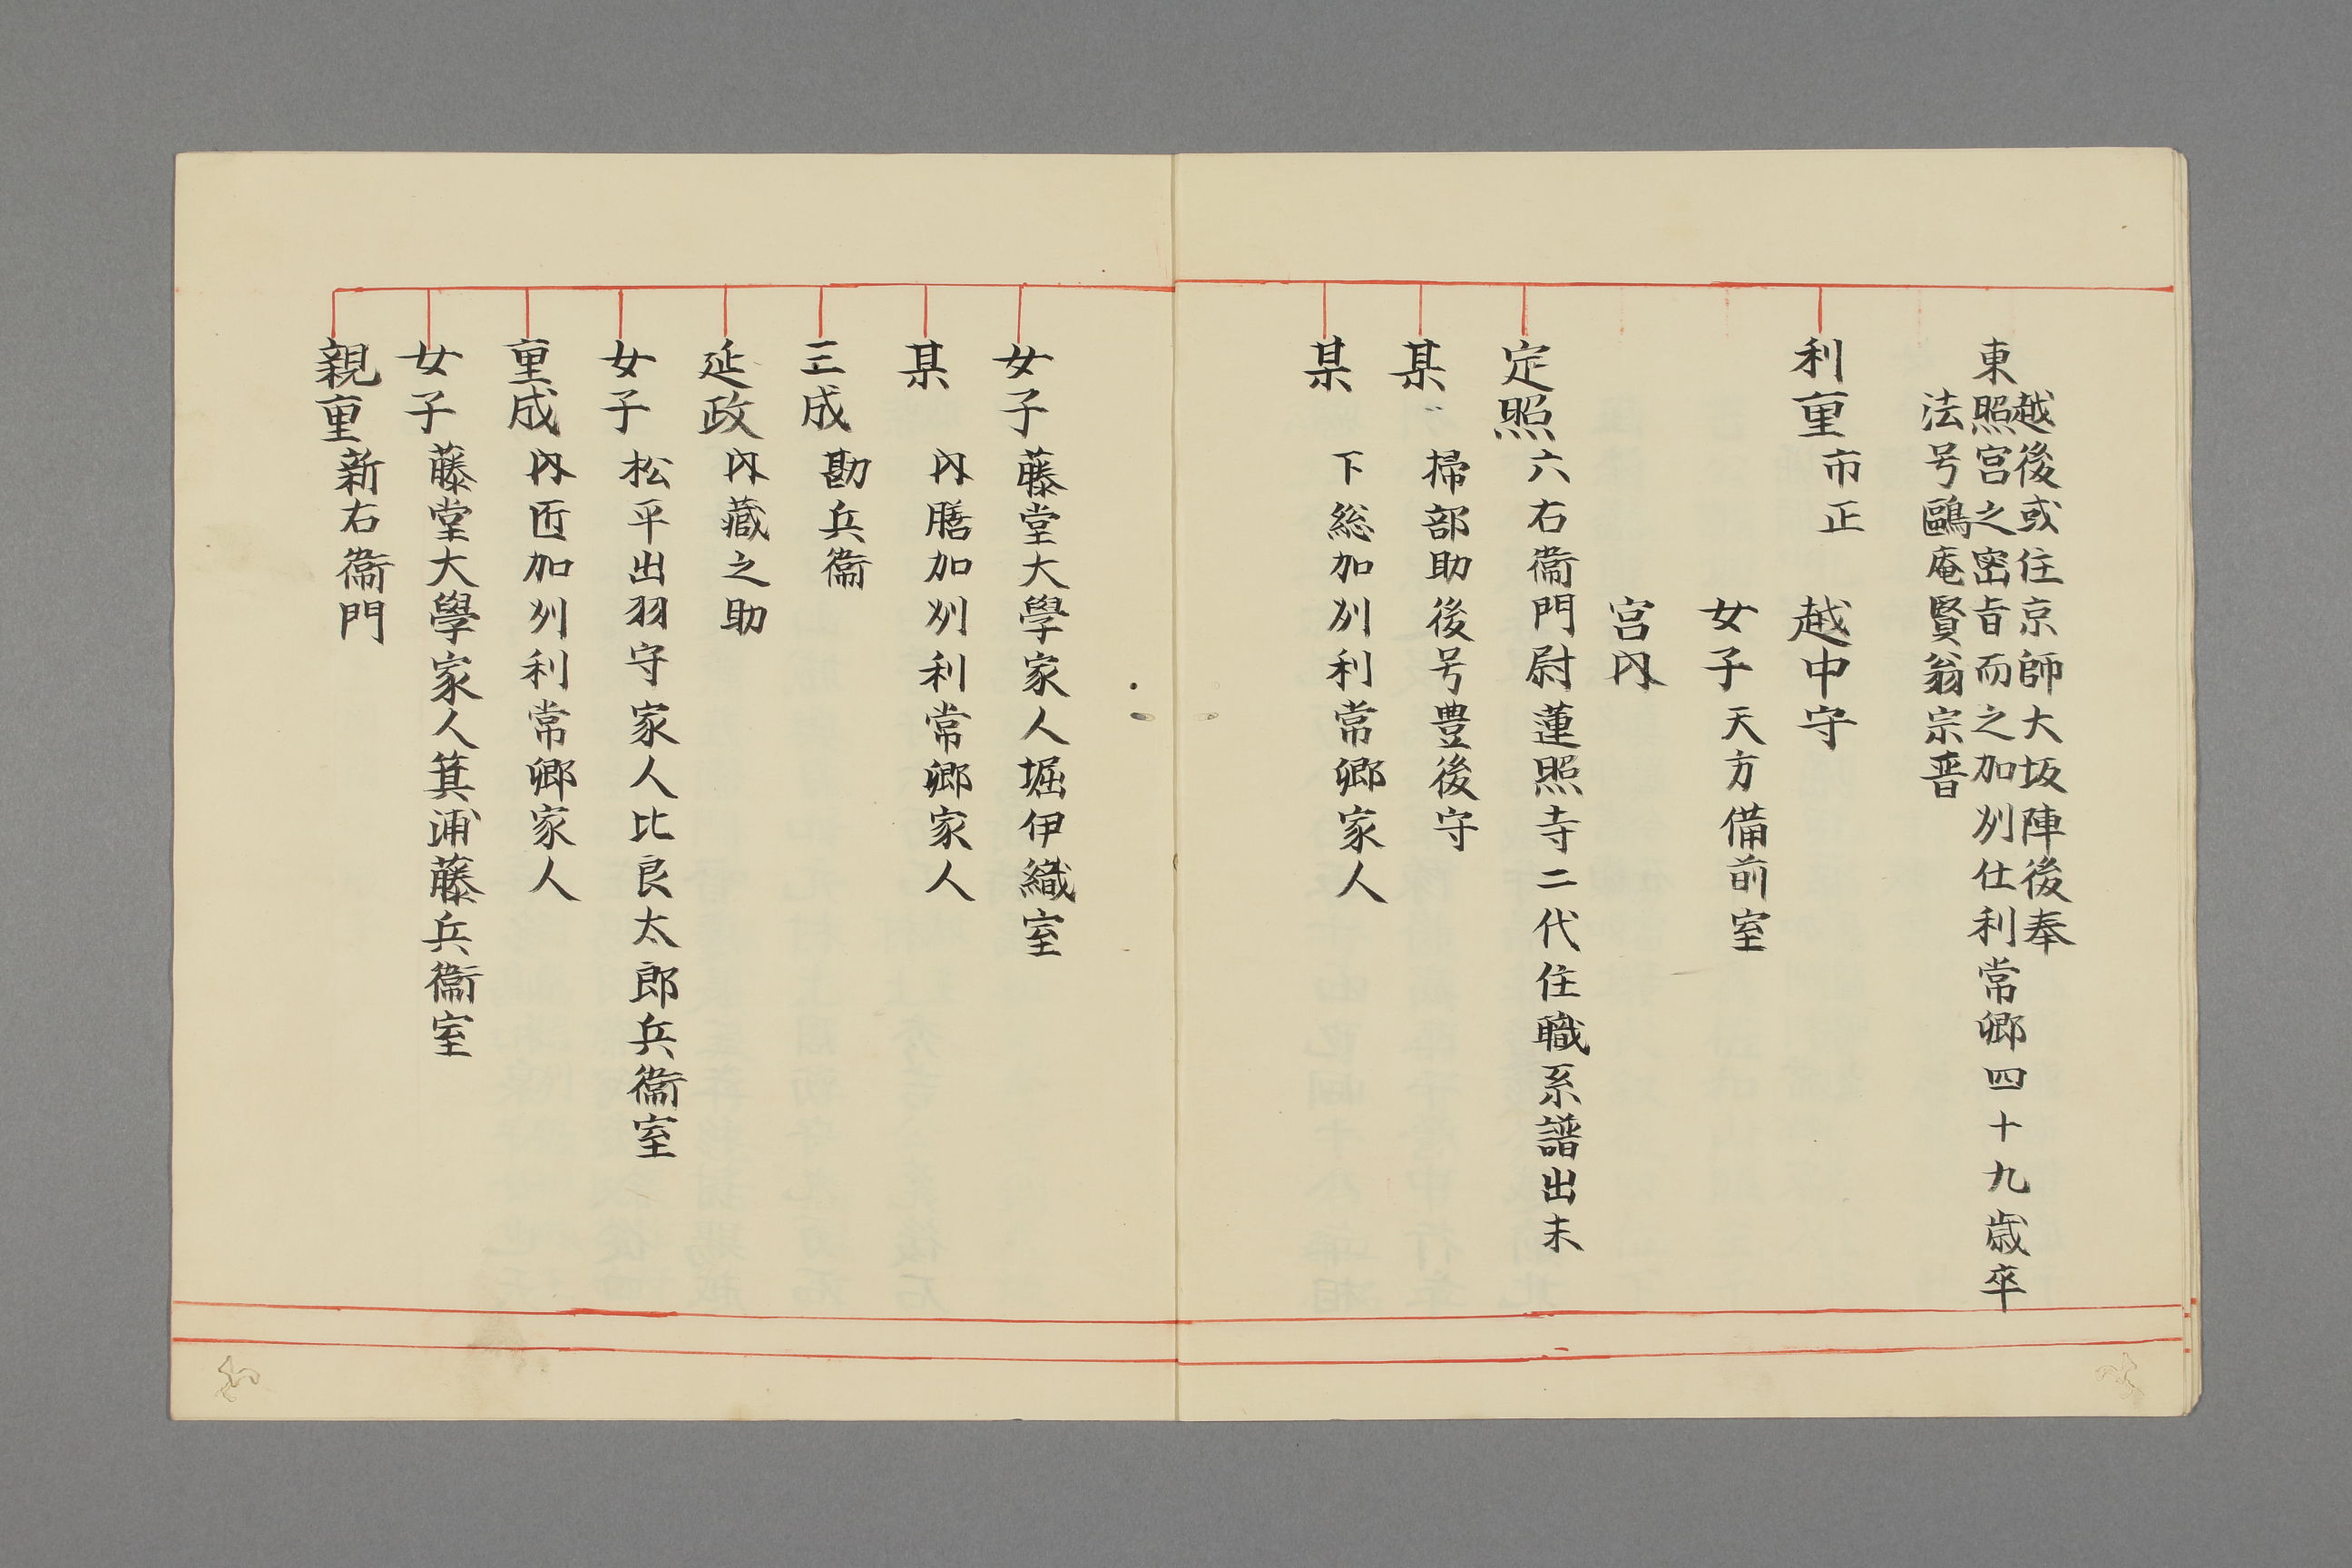 越後或住京師大坂陣後奉
東照宮之密旨而之加刕仕利常卿四十九歳卒
法号鷗庵賢翁宗晋
利重市正　越中守
女子天方備前室
宮内
定照六右衞門尉蓮照寺二代住職系譜出末
某　掃部助後号豊後守
某　下総加刕利常卿家人
女子藤堂大學家人堀伊織室
某　内膳加刕利常卿家人
三成勘兵衞
延政内藏之助
女子松平出羽守家人比良太郎兵衞室
重成内匠加刕利常卿家人
女子藤堂大學家人箕浦藤兵衞室
親重新右衞門